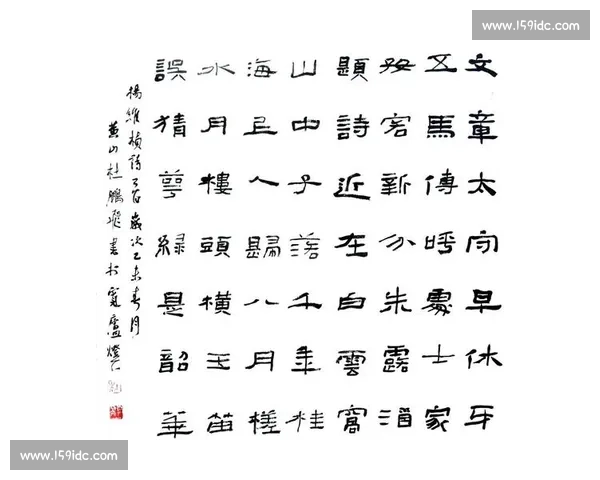 www.159idc.com
文章太守早休牙
五馬傳呼處士家
好客新分朱露酒
題詩近在白雲窩
山中子落千年桂
海上人賜八月槎
水月樓頭橫玉笛
誤猜萼綠是韶華
楊維楨詩一首歲次乙未春月
黃山杜鵬飛書於寬廬燈下
www.159idc.com